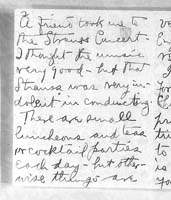 A friend took us to
the Strauss Concert -
I thought the music
very good - but that
Strauss was very in-
dolent in conducting.
There are small
luncheons and teas
or cocktail parties
each day - but other-
wise things are